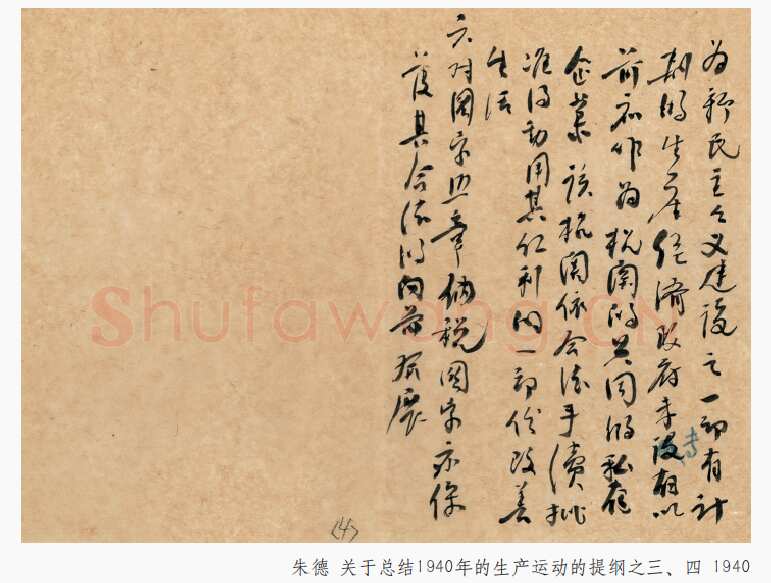 为新民主々义建设之一部有计
的生產经济政府
前亦作为机関的共同的私
企業该机関依合法手续批
准得动用其红利的一部份改善
生活
六对國家照章纳税國家亦保
護其合法的向前发展
(4)
Shufawang.CN
朱德 关于总结1940年的生产运动的提纲之三、四 1940